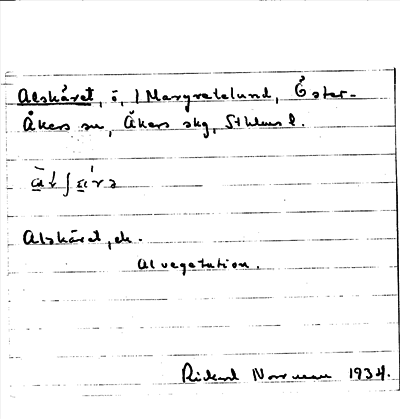 Alskäret, ö, / Margretelund, Öster-
Åkers sn, Åkers skg, Sthlms l.
Alskäret, ek.
Alvegetation.
Rickard Norrman 1934.